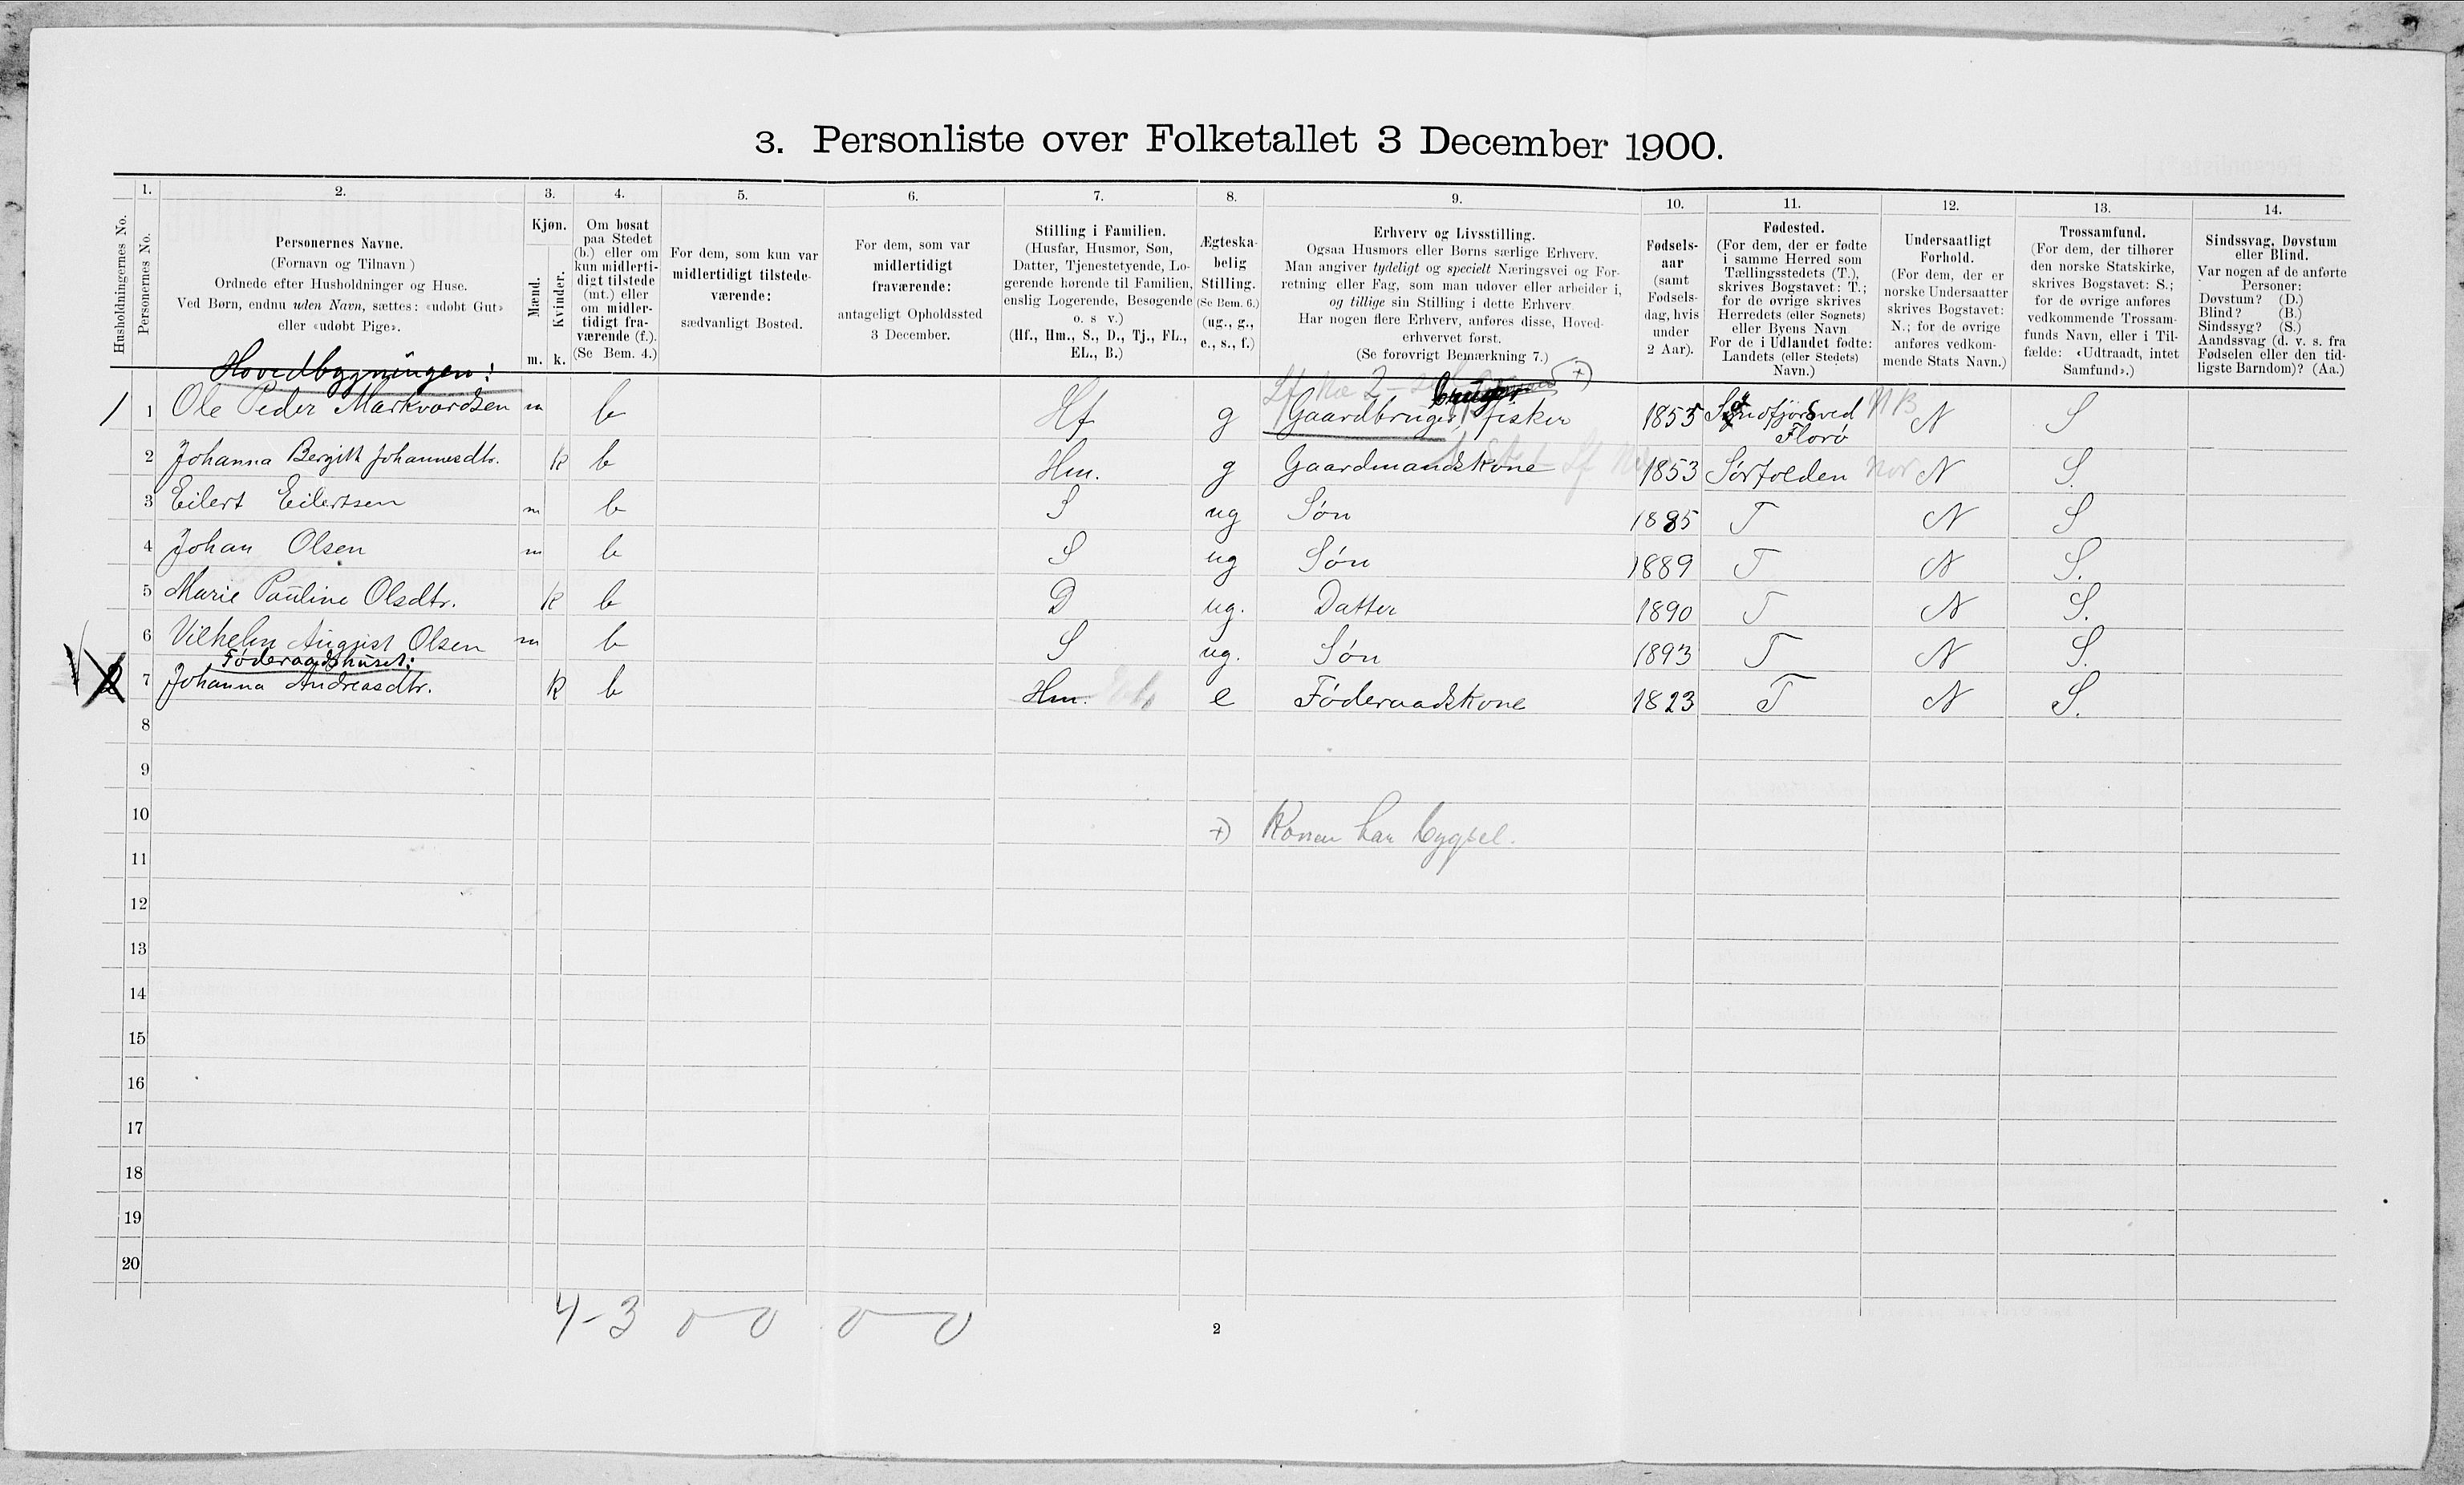 3. Personliste over Folketallet 3 December 1900.
1. 2. 3. 4. 5. 6. 7. 8. 9. 10. 11. 12. 13. 14.
Husholdningernes No.
Personernes No.
Personernes Navne.
(Fornavn og Tilnavn)
Ordnede efter Husholdninger og Huse.
Ved Børn, endnu uden Navn, sættes: «udøbt Gut»
eller «udøbt Pige».
Kjøn.
Mænd.
Kvinder.
m. k.
Om bosat
paa Stedet
(b.) eller om
kun midlerti-
digt tilstede
(mt.) eller
om midler-
tidigt fra-
værende (f.).
(Se Bem. 4.)
For dem, som kun var
midlertidigt tilstede-
værende:
sædvanligt Bosted.
For dem, som var
midlertidigt
fraværende:
antageligt Opholdssted
3 December.
Stilling i Familien.
(Husfar, Husmor, Søn,
Datter, Tjenestetyende, Lo-
gerende hørende til Familien,
enslig Logerende, Besøgende
o. s v.)
(Hf., Hm., S., D., Tj., FL.,
EL., B.)
Ægteska-
belig
Stilling.
(Se Bem. 6.)
(ug., g.,
e., s., f.)
Erhverv og Livsstilling.
Ogsaa Husmors eller Børns særlige Erhverv.
Man angiver tydeligt og specielt Næringsvei og For-
retning eller Fag, som man udøver eller arbeider i,
og tillige sin Stilling i dette Erhverv.
Har nogen flere Erhverv, anføres disse, Hoved-
erhvervet først.
(Se forøvrigt Bemærkning 7.)
Fødsels-
aar
(samt
Fødsels-
dag, hvis
under
2 Aar).
Fødested.
(For dem, der er fødte
i samme Herred som
Tællingsstedets (T.),
skrives Bogstavet: T.;
for de øvrige skrives
Herredets (eller Sognets)
eller Byens Navn
For de i Udlandet fødte:
Landets (eller Stedets)
Navn.)
Undersaatligt
Forhold.
(For dem, der er
norske Undersaatter
skrives Bogstavet:
N.; for de øvrige
anføres vedkom-
mende Stats Navn.)
Trossamfund.
(For dem, der tilhører
den norske Statskirke,
skrives Bogstavet: S.;
for de øvrige anføres
vedkommende Trossam-
funds Navn, eller i Til-
fælde: «Udtraadt, intet
Samfund».)
Sindssvag, Døvstum
eller Blind.
Var nogen af de anførte
Personer:
Døvstum? (D.)
Blind? (B.)
Sindssyg? (S.)
Aandssvag (d. v. s. fra
Fødselen eller den tid-
ligste Barndom)? (Aa.)
Hovedbygningen:
1 1 Ole Peder Markvardsen m b Hf g Gaardbruger, fisker 1855 Søndfjord ved Florø N S
2 Johanna Bergitt Johannesdtr. k b Hm. g Gaardmandskone 1853 Sørfolden N S.
3 Eilert Eilertsen m b S ug Søn 1885 T N S
4 Johan Olsen m b S ug Søn 1889 T N S.
5 Marie Pauline Olsdtr. k b D ug. Datter 1890 T N S.
6 Vilhelm August Olsen m b S ug. Søn 1893 T N S.
Føderaadshuset:
7 Johanna Andreasdtr. k b Hm. e Føderaadskone 1823 T N S.
8
9
10
+) Konen har bygsel.
11
12
13
14
15
16
17
18
19
20
4-3 0-0 0-0
2